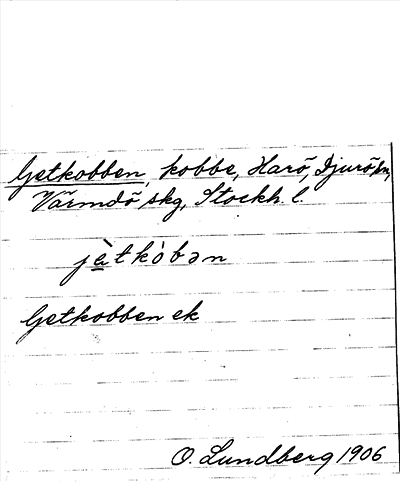 Getkobben, kobbe, Harö, Djurö sn,
Värmdö skg, Stockh. l.
jètkòbən
Getkobben ek
O. Lundberg 1906